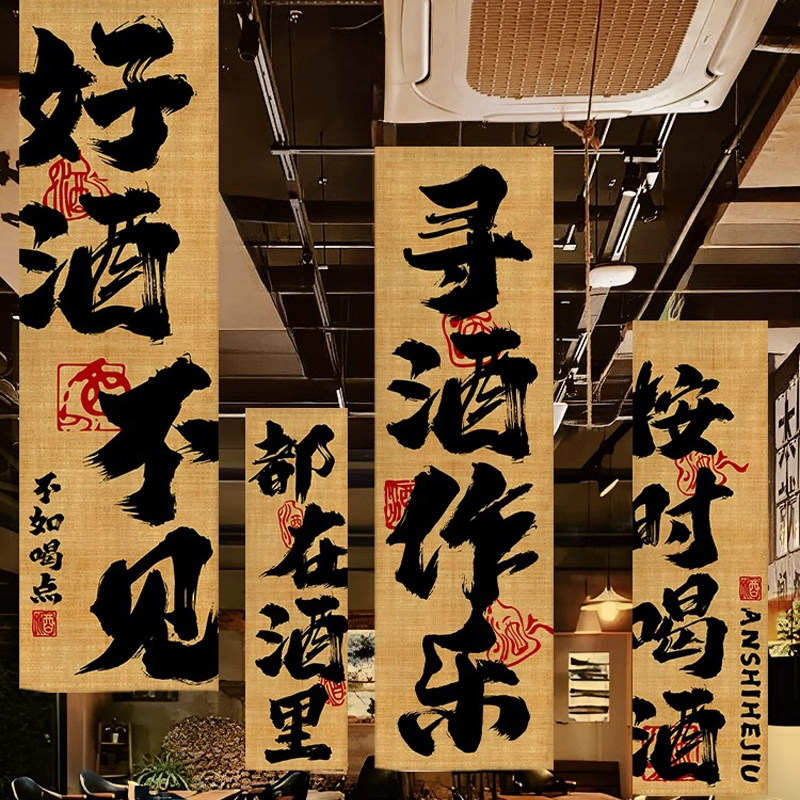 好酒不见
不如喝点
都在酒里
寻酒作乐
按时喝酒
ANSHIHEJIU